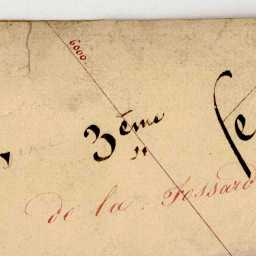 6000
3ème
de la Fossard